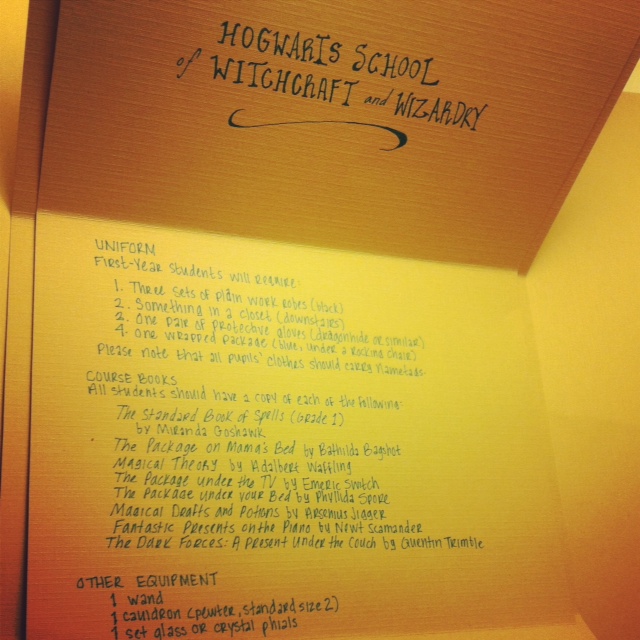 HOGWARTS SCHOOL
of WITCHCRAFT and WIZARDRY
UNIFORM
First-Year Students will require:
1. Three sets of plain work robes (black)
2. Something in a closet (downstairs)
3. One pair of protective gloves (dragonhide or similar)
4. One wrapped package (blue, under a rocking chair)
Please note that all pupils' clothes should carry nametags.
COURSE BOOKS
All students should have a copy of each of the following:
The Standard Book of Spells (Grade 1)
by Miranda Goshawk
The Package on Mama's Bed by Bathilda Bagshot
Magical Theory by Adalbert Waffling
The Package Under the TV by Emeric Switch
The Package Under your Bed by Phyllida Spore
Magical Drafts and Potions by Arsenius Jigger
Fantastic Presents on the Piano by Newt Scamander
The Dark Forces: A Present Under the Couch by Quentin Trimble
OTHER EQUIPMENT
1 wand
1 cauldron (pewter, standard size 2)
1 set glass or crystal phials